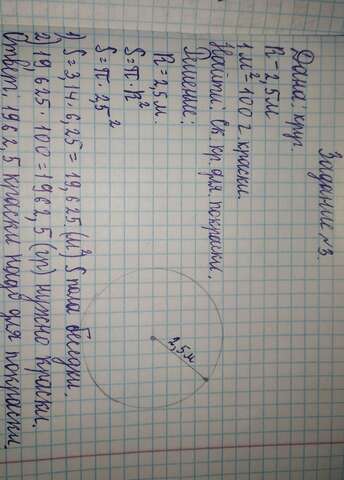 Задание №3.
Дано: круг.
R = 2,5 м
1 м² = 100 г краски.
Найти: Ск. кр. для. покраски.
Решение:
R = 2,5 м.
S = π · R²
S = π · 2,5²
1) S = 3,14 · 6,25 = 19,625 (м²) S пола беседки.
2) 19,625 · 100 = 1962,5 (гр) нужно краски.
Ответ: 1962,5 краски надо для покраски.
2,5 м